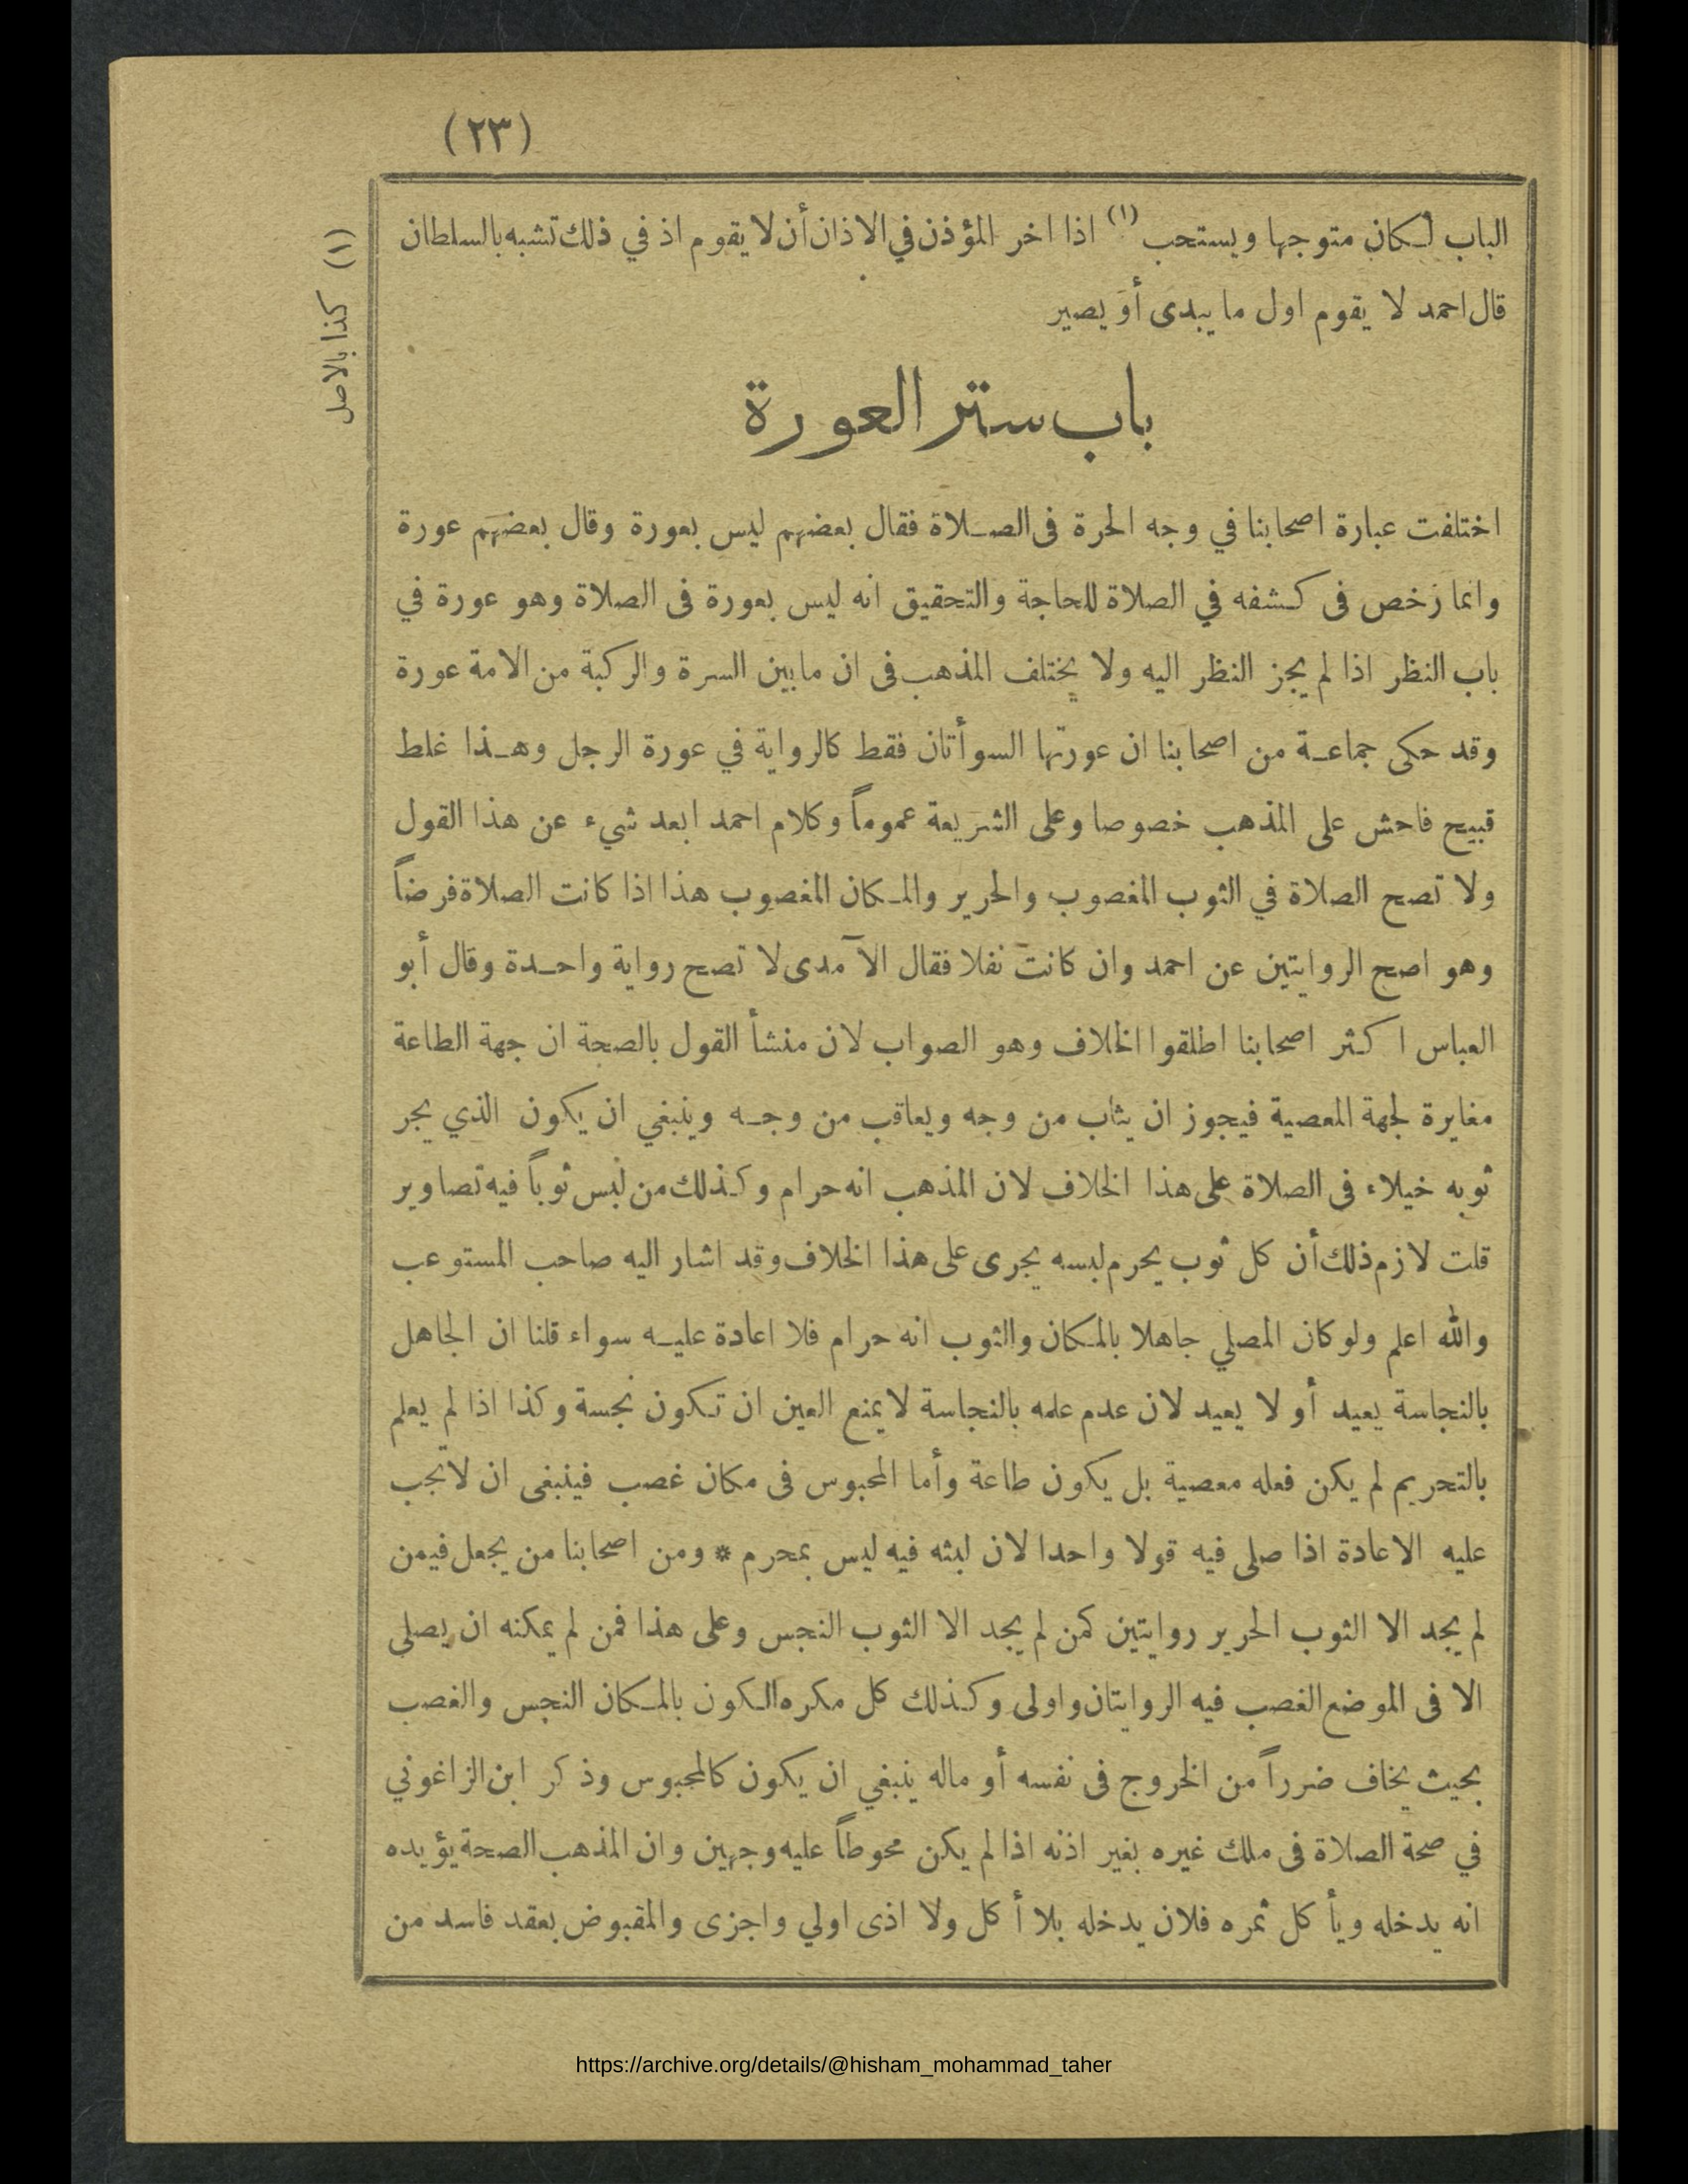 (٢٣)
الباب لكان متوجها ويستحب (١) اذا اخر المؤذن في الاذان أن لا يقوم اذ في ذلك تشبه بالسلطان
قال احمد لا يقوم اول ما يبدى أو يصير
(١) كذا بالاصل
باب ستر العورة
اختلفت عبارة اصحابنا في وجه الحرة فى الصلاة فقال بعضهم ليس بعورة وقال بعضهم عورة
وانما رخص فى كشفه في الصلاة للحاجة والتحقيق انه ليس بعورة فى الصلاة وهو عورة في
باب النظر اذا لم يجز النظر اليه ولا يختلف المذهب فى ان ما بين السرة والركبة من الامة عورة
وقد حكى جماعة من اصحابنا ان عورتها السوأتان فقط كالرواية في عورة الرجل وهذا غلط
قبيح فاحش على المذهب خصوصا وعلى الشريعة عموماً وكلام احمد ابعد شيء عن هذا القول
ولا تصح الصلاة في الثوب المغصوب والحرير والمكان المغصوب هذا اذا كانت الصلاة فرضاً
وهو اصح الروايتين عن احمد وان كانت نفلا فقال الآمدى لا تصح رواية واحدة وقال أبو
العباس اكثر اصحابنا اطلقوا الخلاف وهو الصواب لان منشأ القول بالصحة ان جهة الطاعة
مغايرة لجهة المعصية فيجوز ان يثاب من وجه ويعاقب من وجه وينبغي ان يكون الذي يجر
ثوبه خيلاء فى الصلاة على هذا الخلاف لان المذهب انه حرام وكذلك من لبس ثوباً فيه تصاوير
قلت لازم ذلك أن كل ثوب يحرم لبسه يجرى على هذا الخلاف وقد اشار اليه صاحب المستوعب
والله اعلم ولو كان المصلي جاهلا بالمكان والثوب انه حرام فلا اعادة عليه سواء قلنا ان الجاهل
بالنجاسة يعيد أو لا يعيد لان عدم علمه بالنجاسة لا يمنع العين ان تكون نجسة وكذا اذا لم يعلم
بالتحريم لم يكن فعله معصية بل يكون طاعة وأما المحبوس فى مكان غصب فينبغى ان لا تجب
عليه الاعادة اذا صلى فيه قولا واحدا لان لبثه فيه ليس بمحرم * ومن اصحابنا من يجعل فيمن
لم يجد الا الثوب الحرير روايتين كمن لم يجد الا الثوب النجس وعلى هذا فمن لم يمكنه ان يصلى
الا فى الموضع الغصب فيه الروايتان واولى وكذلك كل مكره الكون بالمكان النجس والغصب
بحيث يخاف ضرراً من الخروج فى نفسه أو ماله ينبغي ان يكون كالمحبوس وذكر ابن الزاغوني
في صحة الصلاة فى ملك غيره بغير اذنه اذا لم يكن محوطاً عليه وجهين وان المذهب الصحة يؤيده
انه يدخله ويأكل ثمره فلان يدخله بلا أكل ولا اذى اولي واجزى والمقبوض بعقد فاسد من
https://archive.org/details/@hisham_mohammad_taher